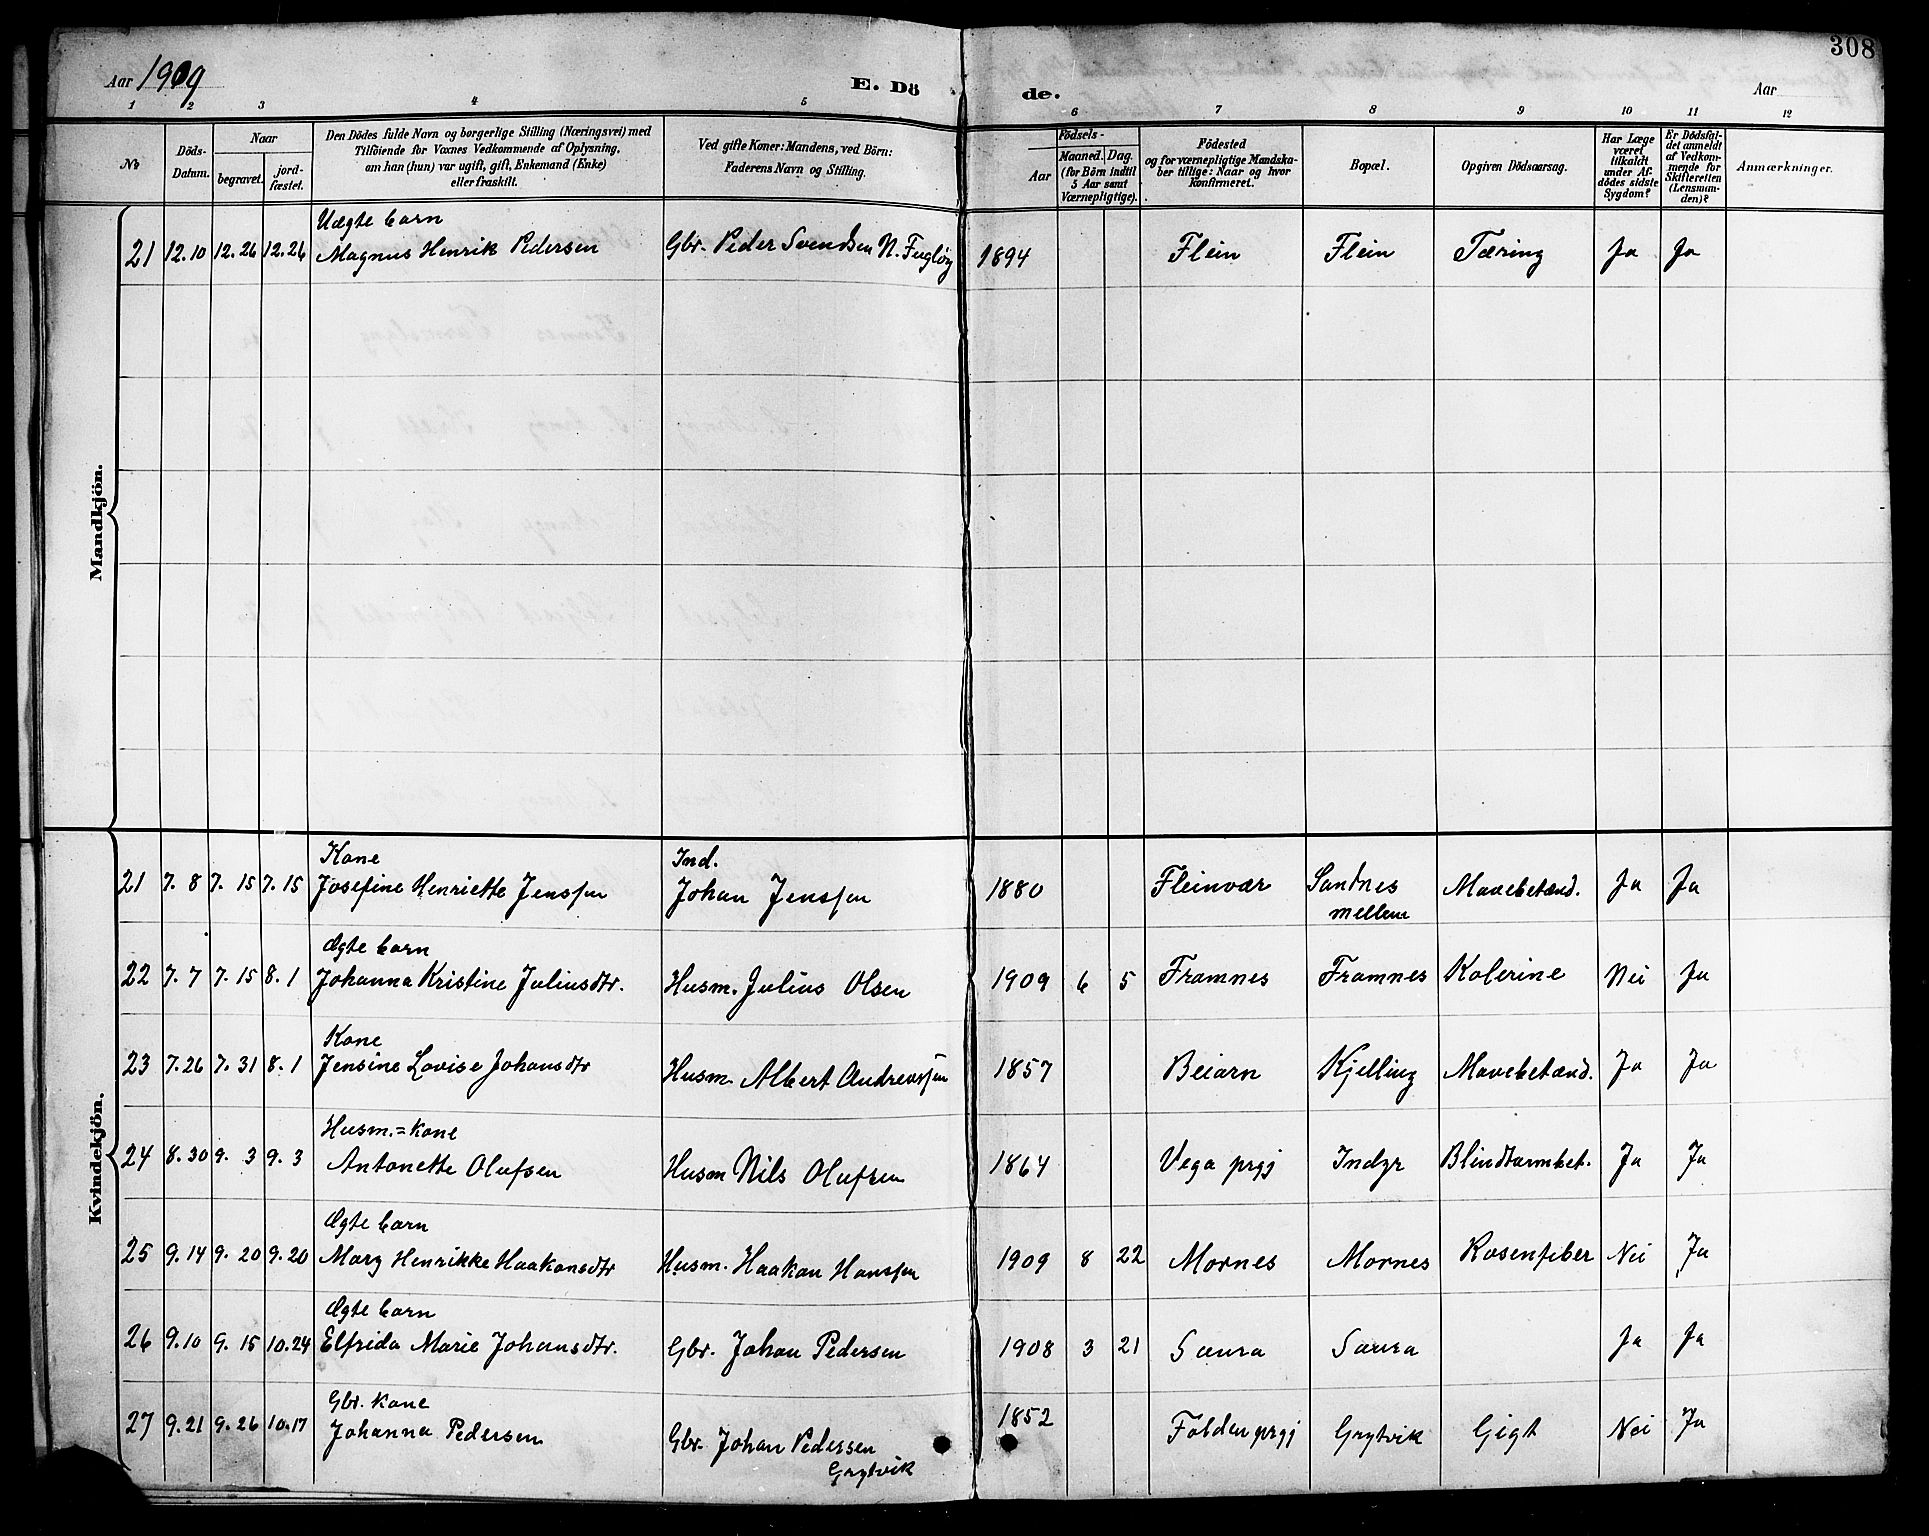 308
Aar 1909
E. Dö
de.
Aar
1 2 3 4 5 6 7 8 9 10 11 12
No
Döds-Datum.
Naar
begravet.
jordfæstet.
Den Dödes fulde Navn og borgerlige Stilling (Næringsvei) med
Tilföiende for Voxnes Vedkommende af Oplysning,
om han (hun) var ugift, gift, Enkemand (Enke)
eller fraskilt.
Ved gifte Koner: Mandens, ved Börn:
Faderens Navn og Stilling.
Födsels-
Aar
Maaned. Dag.
(for Börn indtil
5 Aar samt
Værnepligtige).
Födested
og for værnepligtige Mandska-
ber tillige: Naar og hvor
konfirmeret.
Bopæl.
Opgiven Dödsaarsag.
Har Læge
været
tilkaldt
under Af-
dödes sidste
Sygdom?
Er Dödsfal-
det anmeldt
af Vedkom-
mende for
Skifteretten
(Lensman-
den)?
Anmærkninger.
Mandkjön.
Uægte barn
21 12.10 12.26 12.26 Magnus Henrik Pedersen Gbr. Peder Svendsen N. Fugløy 1894 Flein Flein Tæring Ja Ja
Kvindekjön.
Kone Ind.
21 7. 8 7. 15 7. 15 Josefine Henriette Jenssen Johan Jenssen 1880 Fleinvær Sandnes Mavebetænd. Ja Ja
mellem
Ægte barn
22 7. 7 7. 15 8. 1 Johanna Kristine Juliusdtr. Husm. Julius Olsen 1909 6 5 Framnes Framnes Kolerine Nei Ja
Kone
23 7.26 7. 31 8. 1 Jensine Lovise Johansdtr Husm. Albert Andreassen 1857 Beiarn Kjelling Mavebetænd. Ja Ja
Husm.=kone
24 8.30 9. 3 9. 3 Antonette Olufsen Husm Nils Olufsen 1864 Vega prgj Indyr Blindtarmbet. Ja Ja
Ægte barn
25 9.14 9. 20 9.20 Mary Henrikke Haakonsdtr Husm. Haakon Hanssen 1909 8 22 Mornes Mornes Rosenfeber Nei Ja
Ægte barn
26 9.10 9. 15 10.24 Elfrida Marie Johansdtr. Gbr. Johan Pedersen 1908 3 21 Saura Saura Ja Ja
Gbr. kone
27 9.21 9.26 10.17 Johanna Pedersen Gbr. Johan Pedersen 1852 Folden prgj Grytvik Gigt Nei Ja
Grytvik